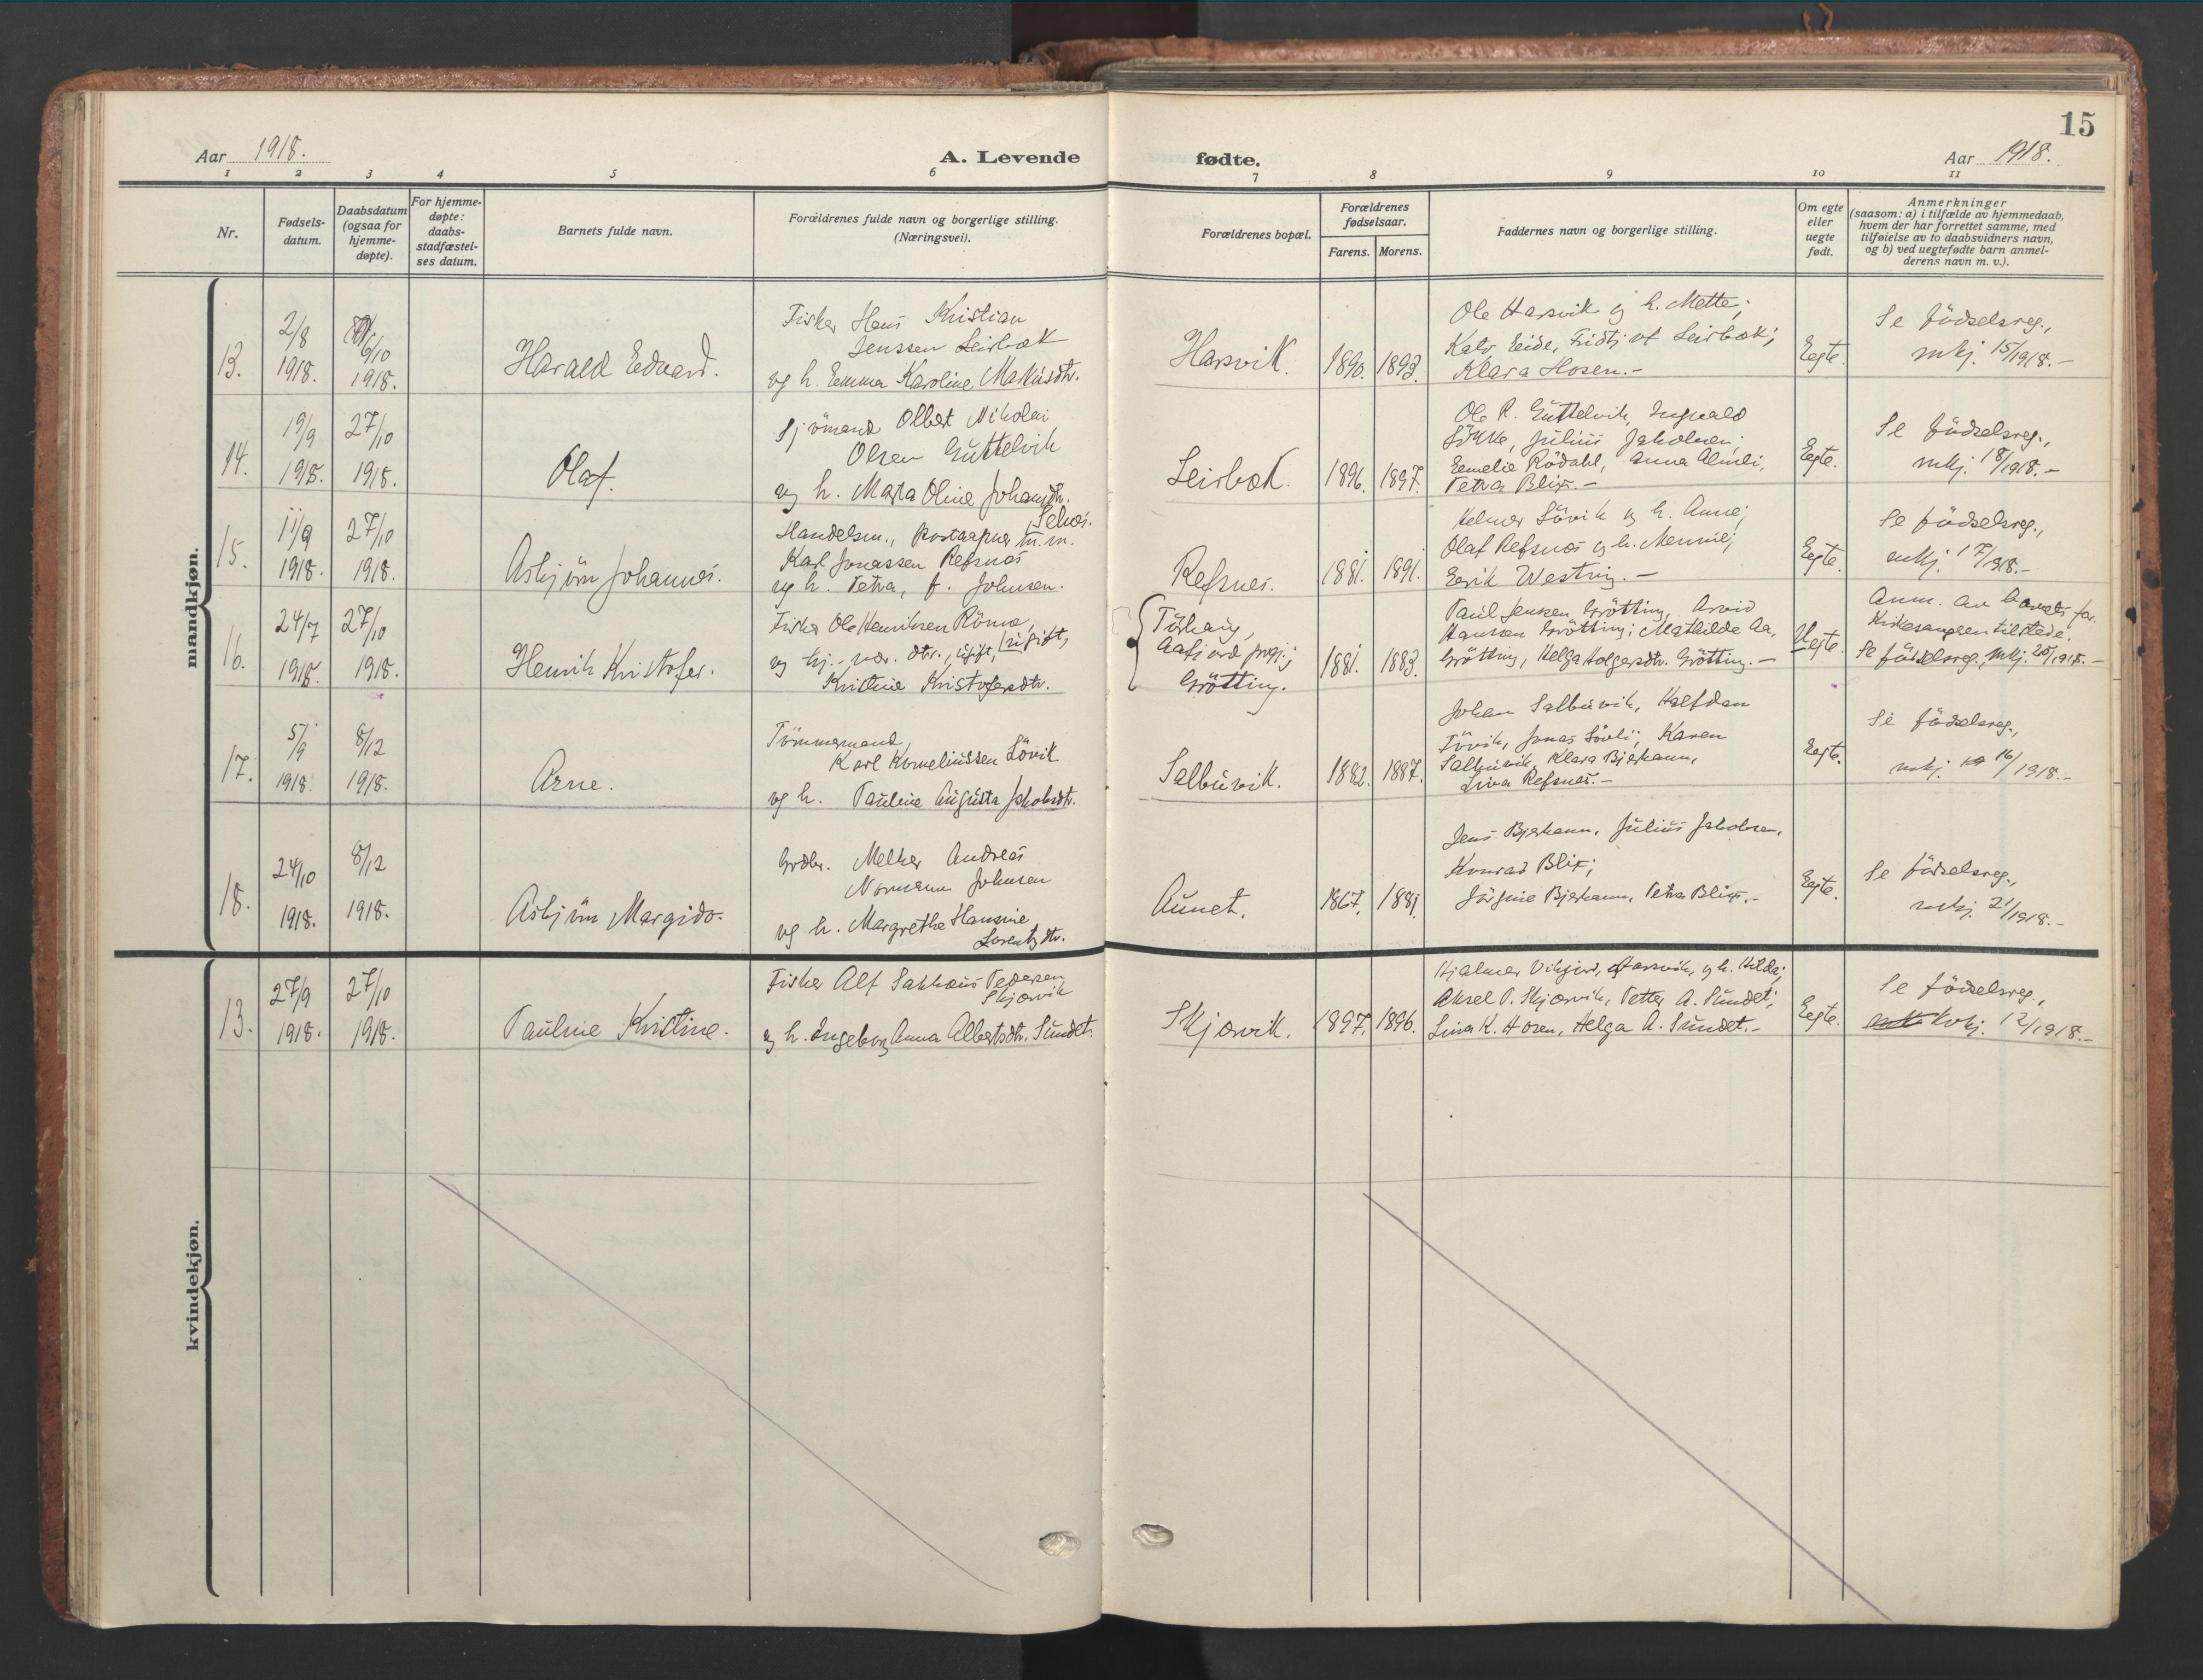 15
Aar 1918.
A. Levende
fødte.
Aar 1918.
1 2 3 4 5 6 7 8 9 10 11
Nr.
Fødsels-
datum.
Daabsdatum
(ogsaa for
hjemme-
døpte).
For hjemme-
døpte:
daabs-
stadfæstel-
ses datum.
Barnets fulde navn.
Forældrenes fulde navn og borgerlige stilling.
(Næringsvei).
Forældrenes bopæl.
Forældrenes
fødselsaar.
Farens. Morens.
Faddernes navn og borgerlige stilling.
Om egte
eller
uegte
født.
Anmerkninger
(saasom: a) i tilfælde av hjemmedaab,
hvem der har forrettet samme, med
tilføielse av to daabsvidners navn,
og b) ved uegtefødte barn anmel-
derens navn m. v.).
mandkjøn.
13.
2/8
1918.
6/10
1918.
Harald Edvard.
Fisker Hans Kristian
Jenssen Leirbæk
og h. Emma Karoline Markusdtr.
Harsvik.
1890. 1893.
Ole Harsvik og h. Mette;
Eide, Fridtjof Leirbæk;
Klara Hosen.-
Egte.
Se fødselsreg.,
mkj. 15/1918.-
14.
19/9
1918.
27/10
1918.
Olaf.
Sjømand Olbert Nikolai
Olsen Guttelvik
og h. Marta Oline Johansdtr.
Leirbæk.
1896. 1897.
Ole R. Guttelvik, Ingvald
Løkke, Julius Jakobsen;
Emelie Rødahl, Anna Almli,
Petra Blix.-
Egte.
Se fødselsreg.,
mkj. 18/1918.-
15.
11/9
1918.
27/10
1918.
Asbjørn Johannes.
Handelsm., postaapner m.m.
Karl Jonassen Refsnes
og h. Petra, f. Johnsen.
Refsnes.
1881. 1891.
Helmer Løvik og h. Anne;
Olaf Refsnes og h. Mennie;
Erik Westvig.-
Egte.
Se fødselsreg.,
mkj. 17/1918.-
16.
24/7
1918.
27/10
1918.
Henrik Kristofer.
Fisker Ole Henriksen Rømo, ugift,
og hj. vær. dtr., ugift,
Kristine Kristofersdtr.
Tørhaug,
Aafjord prgj.;
Grøtting.
1881. 1883.
Paul Jensen Grøtting, Arvid
Hanssen Grøtting; Mathilde Aa.
Grøtting, Helga Holgersdtr. Grøtting.-
Uegte.
Anm. av barnets far.
Kirkesangeren tilstede.
Se fødselsreg., mkj. 20/1918.-
17.
5/9
1918.
8/12
1918.
Arne.
Tømmermand
Karl Korneliussen Løvik
og h. Pauline Augusta Jakobsdtr.
Salbuvik.
1882. 1887.
Johan Salbuvik, Halfdan
Løvik, Jonas Løvli; Karen
Salbuvik, Klara Bjerkann,
Lina Refsnes.-
Egte.
Se fødselsreg.,
mkj. 16/1918.-
18.
24/10
1918.
8/12
1918.
Asbjørn Margido.
Grdbr. Melker Andreas
Normann Johnsen
og h. Margrethe Hansine
Lorentzdtr.
Aunet.
1867. 1881.
Jens Bjerkann, Julius Jakobsen,
Konrad Blix;
Jørgine Bjerkann, Petra Blix.-
Egte.
Se fødselsreg.,
mkj. 21/1918.-
kvindekjøn.
13.
27/9
1918.
27/10
1918.
Pauline Kristine.
Fisker Alf Sakkæus Pedersen
Skjærvik
og h. Ingeborg Anna Albertsdtr. Sundet.
Skjærvik.
1897. 1896.
Hjalmar Vikjord, Harsvik, og h. Hilda;
Aksel P. Skjærvik, Petter A. Sundet;
Lina K. Hosen, Helga A. Sundet.-
Egte.
Se fødselsreg.,
kvkj. 12/1918.-